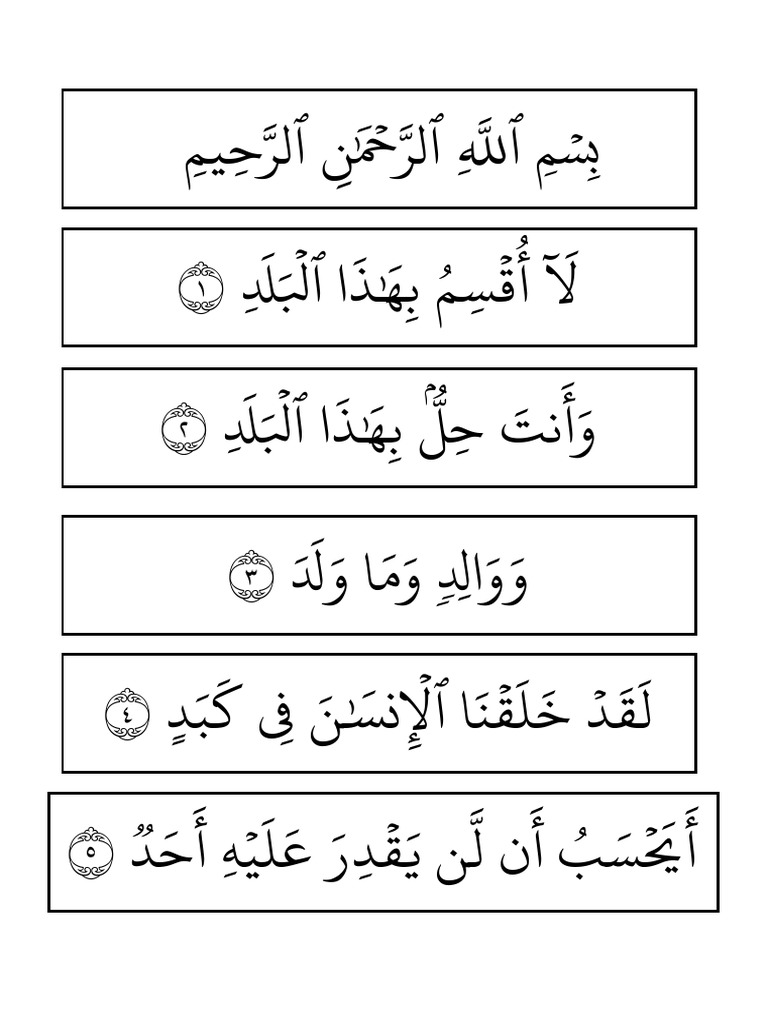 بِسۡمِ ٱللَّهِ ٱلرَّحۡمَٰنِ ٱلرَّحِيمِ
لَآ أُقۡسِمُ بِهَٰذَا ٱلۡبَلَدِ ١
وَأَنتَ حِلُّۢ بِهَٰذَا ٱلۡبَلَدِ ٢
وَوَالِدٖ وَمَا وَلَدَ ٣
لَقَدۡ خَلَقۡنَا ٱلۡإِنسَٰنَ فِي كَبَدٍ ٤
أَيَحۡسَبُ أَن لَّن يَقۡدِرَ عَلَيۡهِ أَحَدٞ ٥